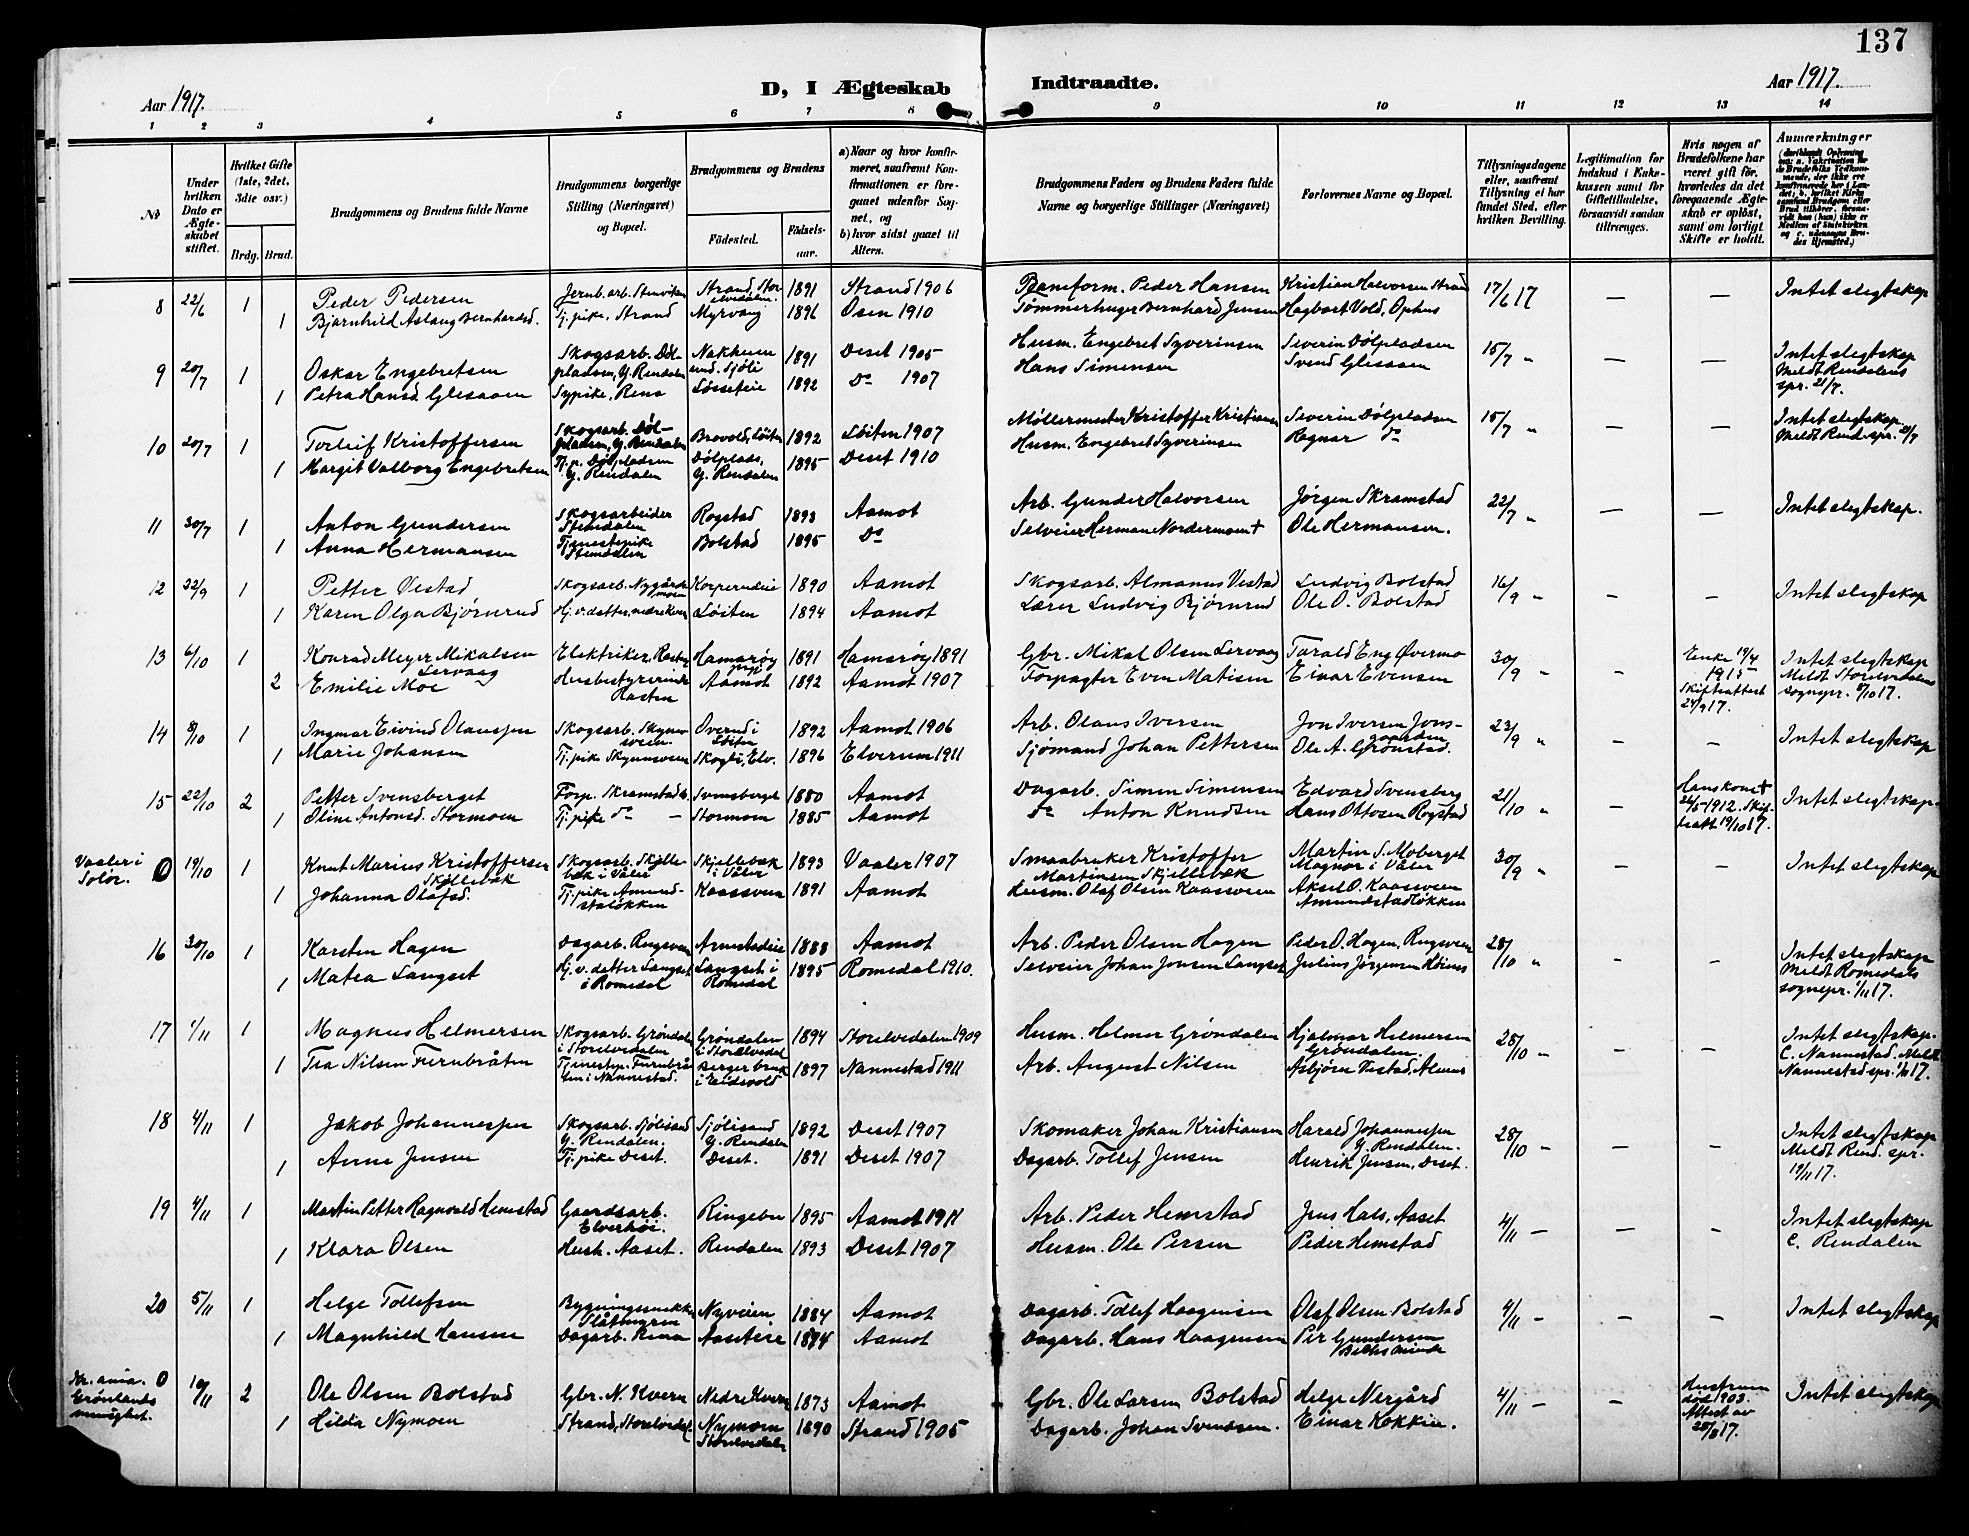 137
D, I Ægteskab Indtraadte.
Aar 1917.
Aar 1917.
1 2 3 4 5 6 7 8 9 10 11 12 13 14
No
Under hvilken Dato er Ægteskabet stiftet.
Hvilket Gifte (1ste, 2det, 3die osv.)
Brdg. Brud.
Brudgommens og Brudens fulde Navne
Brudgommens borgerlige Stilling (Næringsvei) og Bopæl.
Brudgommens og Brudens
Fødested.
Fødselsaar.
a) Naar og hvor konfirmeret, saafremt Konfirmationen er foregaaet udenfor Sognet, og
b) hvor sidst gaaet til Alters.
Brudgommens Faders og Brudens Faders fulde Navne og borgerlige Stillinger (Næringsvei)
Forlovernes Navne og Bopæl.
Tillysningsdagene eller, saafremt Tillysning ei har fundet Sted, efter hvilken Bevilling.
Legitimation for Indskud i Enkekassen samt for Giftetilladelse, forsaavidt saadan tiltrænges.
Hvis nogen af Brudefolkene har været gift før, hvorledes da det foregaaende Ægteskab er opløst, samt om lovligt Skifte er holdt.
Anmærkninger
8 22/6 1 Peder Pedersen Jernb.arb. Stenviken Strand, Storelvedalen. 1891 Strand 1906 Baneform. Peder Hansen Kristian Halvorsen Strand 17/6 17 — — Intet slegtskap
1 Bjarnhild Aslaug Bernhardsd. Tj.pike, Strand Myrvang 1896 Osen 1910 Tømmerhugger Bernhard Jensen Hagbart Vold, Ophus
9 20/7 1 Oskar Engebretsen Skogsarb. Dølpladsen, Y. Rendalen 1891 Deset 1905 Husm. Engebret Syverinsen Severin Dølpladsen 15/7 " — — Intet slegtskap Meldt Rendalens spr. 21/7.
1 Petra Hansd. Glesaaen Sypike, Rena Løsseteie 1892 Do 1907 Hans Simensen Svend Glesaaen
10 20/7 1 Torleif Kristoffersen Skogsarb. Dølpladsen, Y. Rendalen Brovold, Løiten 1892 Løiten 1907 Møllermester Kristoffer Kristiansen Severin Dølpladsen 15/7 " — — Intet slegtskap. Meldt Rend. spr. 21/7
1 Margit Valborg Engebretsen Tj.p. Dølpladsen Y. Rendalen Dølplads, Y. Rendalen 1895 Deset 1910 Husm. Engebret Syverinsen Ragnar do
11 30/7 1 Anton Gundersen Skogsarbeider Stendalen Rogstad 1893 Aamot Arb. Gunder Halvorsen Jørgen Skramstad 22/7 " — — Intet slegtskap.
1 Anna Hermansen Tjenestepike Stendalen Bolstad 1895 Do Selveier Herman Nordermoen † Ole Hermansen.
12 22/9 1 Petter Vestad Skogsarb. Nygårdsmoen 1890 Aamot Skogsarb. Almanus Vestad Ludvig Bolstad 16/9 " — — Intet slegtskap
1 Karen Olga Bjørnrud Hj.v. datter Løiten 1894 Aamot Lærer Ludvig Bjørnrud Ole O. Bolstad
13 6/10 1 Konrad Meyer Mikalsen Lervaag Elektriker, Rasten Hamarøy 1891 Hamarøy 1891 Gbr. Mikal Olsen Lervaag Tarald Eng Øvermo 30/9 " — Enke 19/4 1915 Skifteattest 24/9 17. Intet slegtskap Meldt Storelvedalens sognepr. 8/10 17.
2 Emilie Moe Husbestyrerinde Rasten Aamot 1892 Aamot 1907 Forpagter Even Matisen Einar Evensen
14 8/10 1 Ingmar Eivind Olaussen Skogsarb. Skynnsveen Overud i Løiten 1892 Aamot 1906 Arb. Olaus Iversen Jon Iversen Jonsgaarden 23/9 " — — Intet slegtskap
1 Marie Johansen Tj.pike Skynnsveen Skogli, Elv. 1896 Elverum 1911 Sjømand Johan Pettersen Ole A. Grønstad.
15 22/10 2 Petter Svensberget Forp. Skramstad Svensberget 1880 Aamot Dagarb. Simen Simensen Edvard Svensberg 21/10 " — Hans kone † 26/5 1912. Skifteatt 19/10 17. Intet slegtskap.
1 Oline Antonsd. Stormoen Tj.pike do — Stormoen 1885 Aamot do Anton Knudsen Hans Ottosen Rogstad
Vaaler i Solør. 0 19/10 1 Knut Marius Kristoffersen Skjellebæk Skogsarb. Skjellebæk i Våler Skjellebæk i Våler 1893 Vaaler 1907 Smaabruker Kristoffer Martinsen Skjellebæk Martin S. Moberget Magnor i Våler 30/9 — — Intet slegtskap
1 Johanna Olafsd. Tj.pike Amundstaløkken Kaassveen 1891 Aamot Husm. Olaf Olsen Kaassveen Aksel O. Kaassveen Amundstadløkken
16 30/10 1 Karsten Hagen Dagarb. Rugsveen Arnestadeie 1888 Aamot Arb. Peder Olsen Hagen Peder O. Hagen, Rugsveen 28/10 " — — Intet slegtskap Meldt Romedals sognepr. 1/11 17.
1 Matea Langset Hj.v. datter Langset i Romedal Langset i Romedal 1895 Romedal 1910. Selveier Johan Jonsen Langset Julius Jørgensen
17 1/11 1 Magnus Helmersen Skogsarb. Grøndalen i Storelvedalen Grøndalen i Storelvedal 1894 Storelvedalen 1909 Husm. Helmer Grøndalen Hjalmar Helmersen Grøndalen. 28/10 — — — Intet slegtskap. C. Nannestad. Meldt Nannestad spr. 1/11 17.
1 Tea Nilsen Furnbråten Tjenestep. Furnbråten i Nannestad. Berger bruk i Eidsvold 1897 Nannestad 1911 Arb. August Nilsen Asbjørn Vestad, Alenes
18 4/11 1 Jakob Johannessen Skogsarb. Sjølisand Y. Rendalen. Sjølisand Y. Rendalen 1892 Deset 1907 Skomaker Johan Kristiansen Harald Johannessen Y. Rendalen. 28/10 — — — Intet slegtskap Meldt Rend. spr. 19/11 17.
1 Anne Jensen Tj.pike Deset. Deset. 1891 Deset 1907 Dagarb. Tollef Jensen Henrik Jensen, Deset.
19 4/11 1 Martin Petter Ragnvald Hemstad Gaardsarb. Elverhøi Ringebu 1895 Aamot 1911 Arb. Peder Hemstad Jens Hals, Aaset 4/11 — — — Intet slegtskap C. Rendalen
1 Klara Olsen Hush. Aaset. Rendalen 1893 Deset 1907 Husm. Ole Persen Peder Hemstad
20 5/11 1 Helge Tollefsen Bygningssnekker Nyveien 1884 Aamot Dagarb. Tollef Haagensen Olaf Olsen Bolstad 4/11 — — — Intet slegtskap
1 Magnhild Hansen Dagarb. Rena Aaseteie 1874 Aamot Dagarb. Hans Haagensen Per Gundersen
Kr.ania. Grønlands menighet. 0 10/11 2 Ole Olsen Bolstad Gbr. N. Kvern Nedre Kvern 1873 Aamot Gbr. Ole Larsen Bolstad Helge Nergård 4/11 — — Hustruen død 1909. Attest av 25/8 17. Intet slegtskap
1 Hilda Nymoen Strand, Storelvedal Nymoen Storelvedalen 1890 Strand 1905 Dagarb. Johan Svendsen. Einar Kokkin.